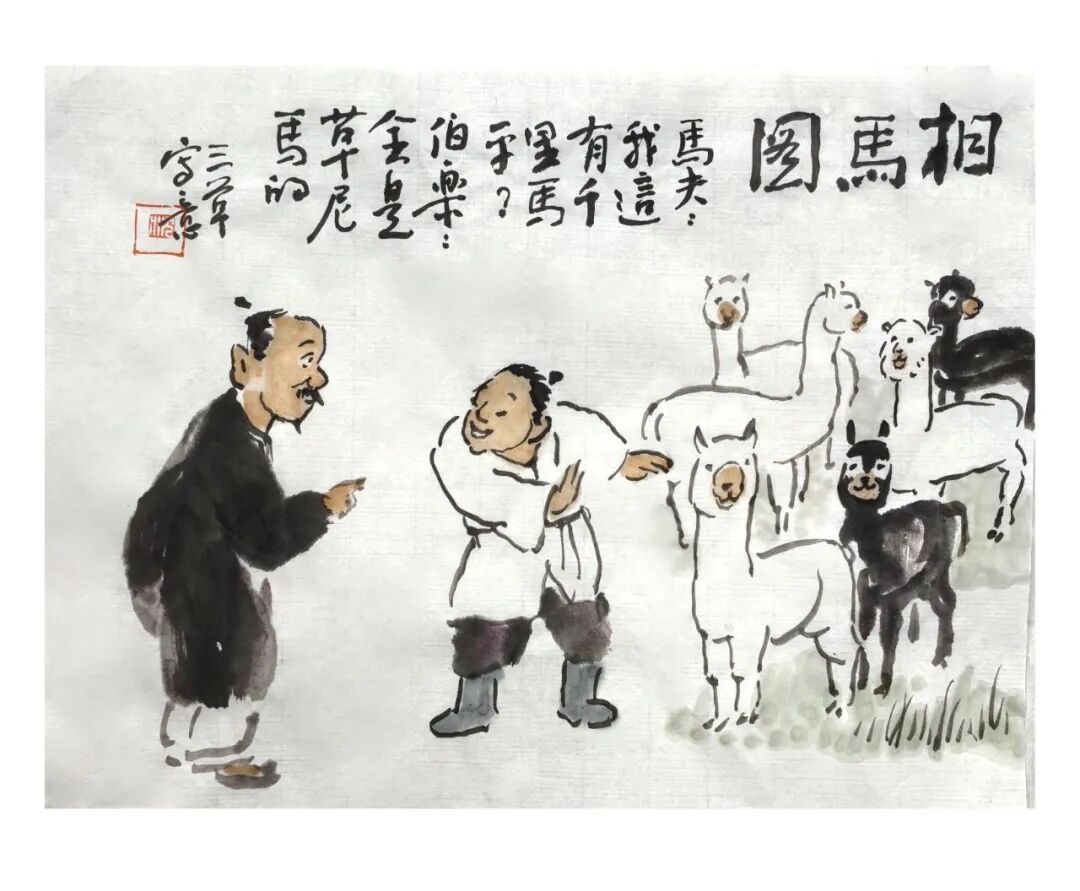 相馬图
馬夫：
我這
有千
里馬
乎？
伯楽：
全是
草尼
馬的
三草
写意